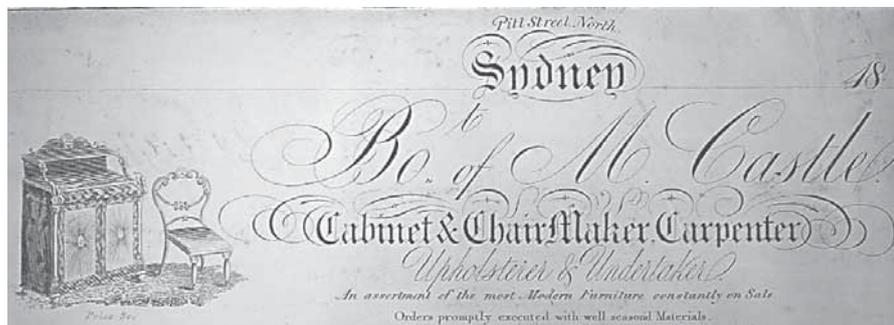 Pitt Street North.
Sydney 18
Bot. of M. Castle.
Cabinet & Chair Maker. Carpenter
Upholsterer & Undertaker.
An assortment of the most Modern Furniture constantly on Sale
Orders promptly executed with well seasond Materials.